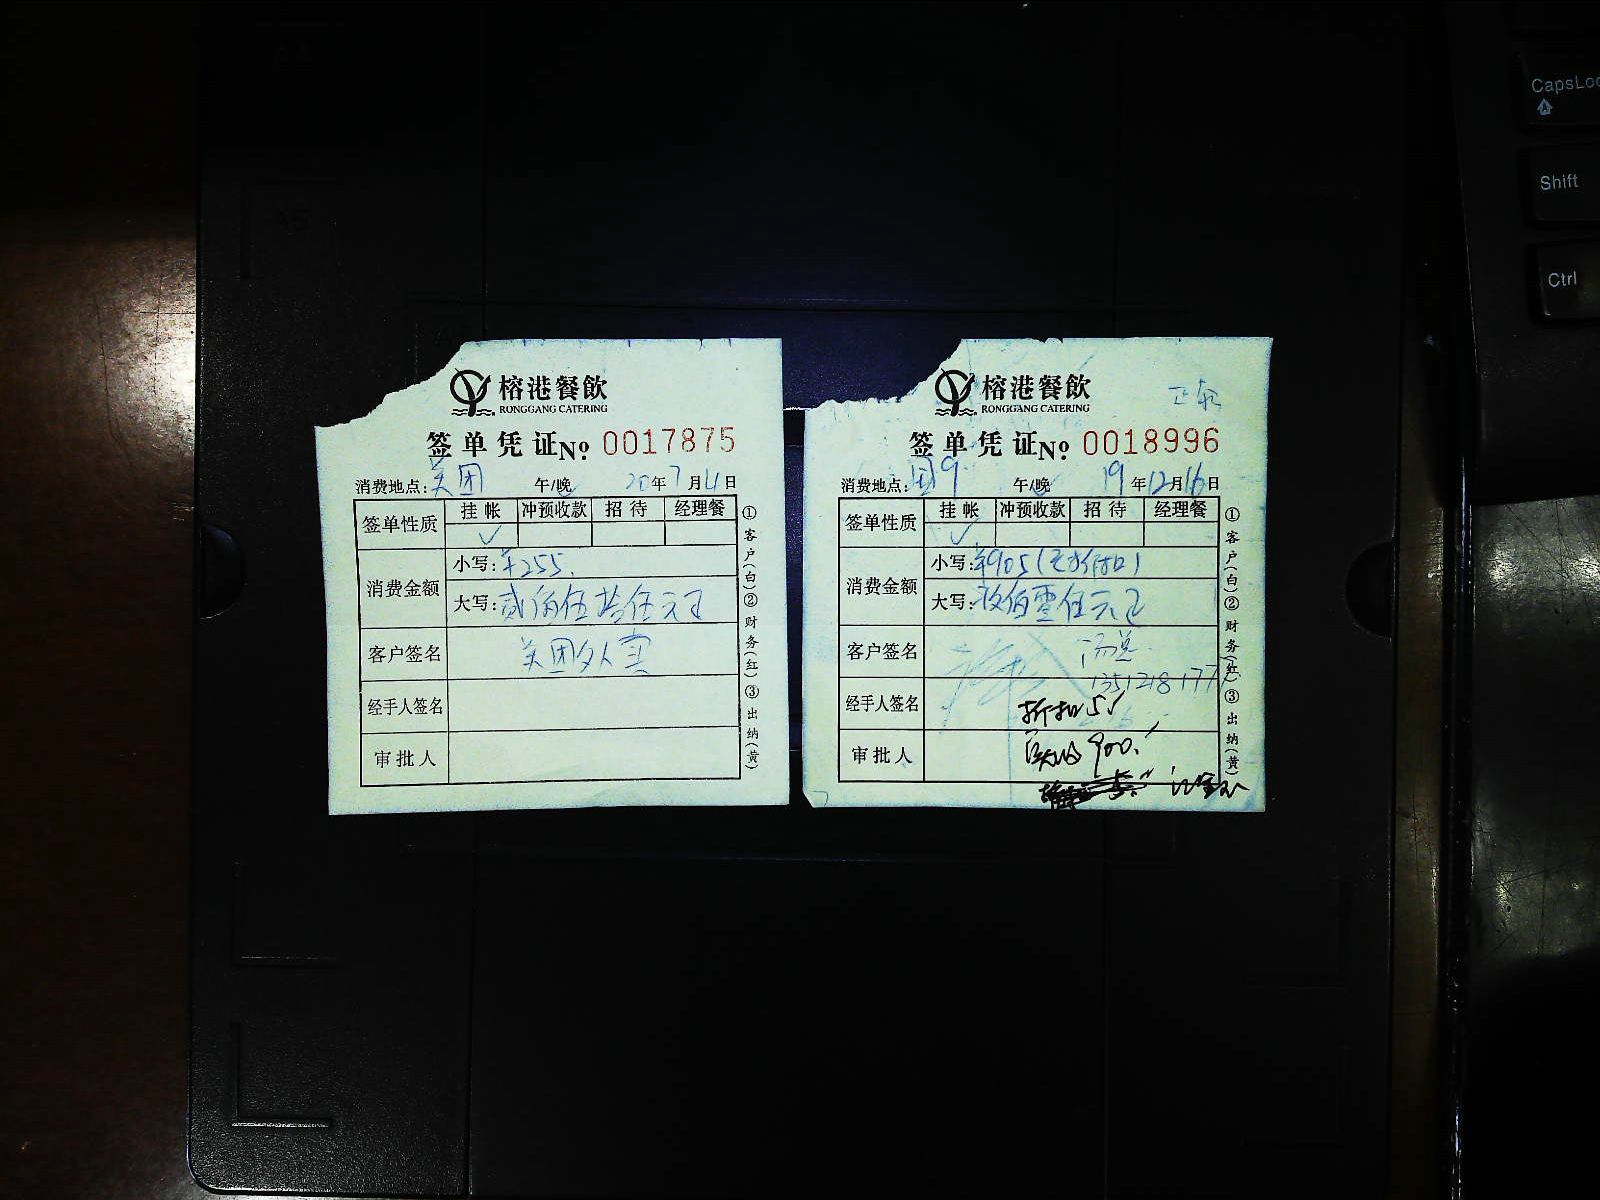 榕港餐飲
RONGGANG CATERING
签单凭证 No. 0017875
消费地点: 美团 午/晚 20年7月4日
签单性质 挂帐 冲预收款 招待 经理餐
✓
消费金额
小写: ¥255.
大写: 贰佰伍拾伍元正
客户签名 美团外卖
经手人签名
审批人
①客户(白)②财务(红)③出纳(黄)
榕港餐飲
RONGGANG CATERING
签单凭证 No. 0018996
消费地点: 午/晚 19年12月16日
签单性质 挂帐 冲预收款 招待 经理餐
✓
消费金额
小写: ¥905
大写: 玖佰零伍元正
客户签名 汤总
经手人签名
折扣5
审批人
900.
①客户(白)②财务(红)③出纳(黄)
CapsLoc
Shift
Ctrl